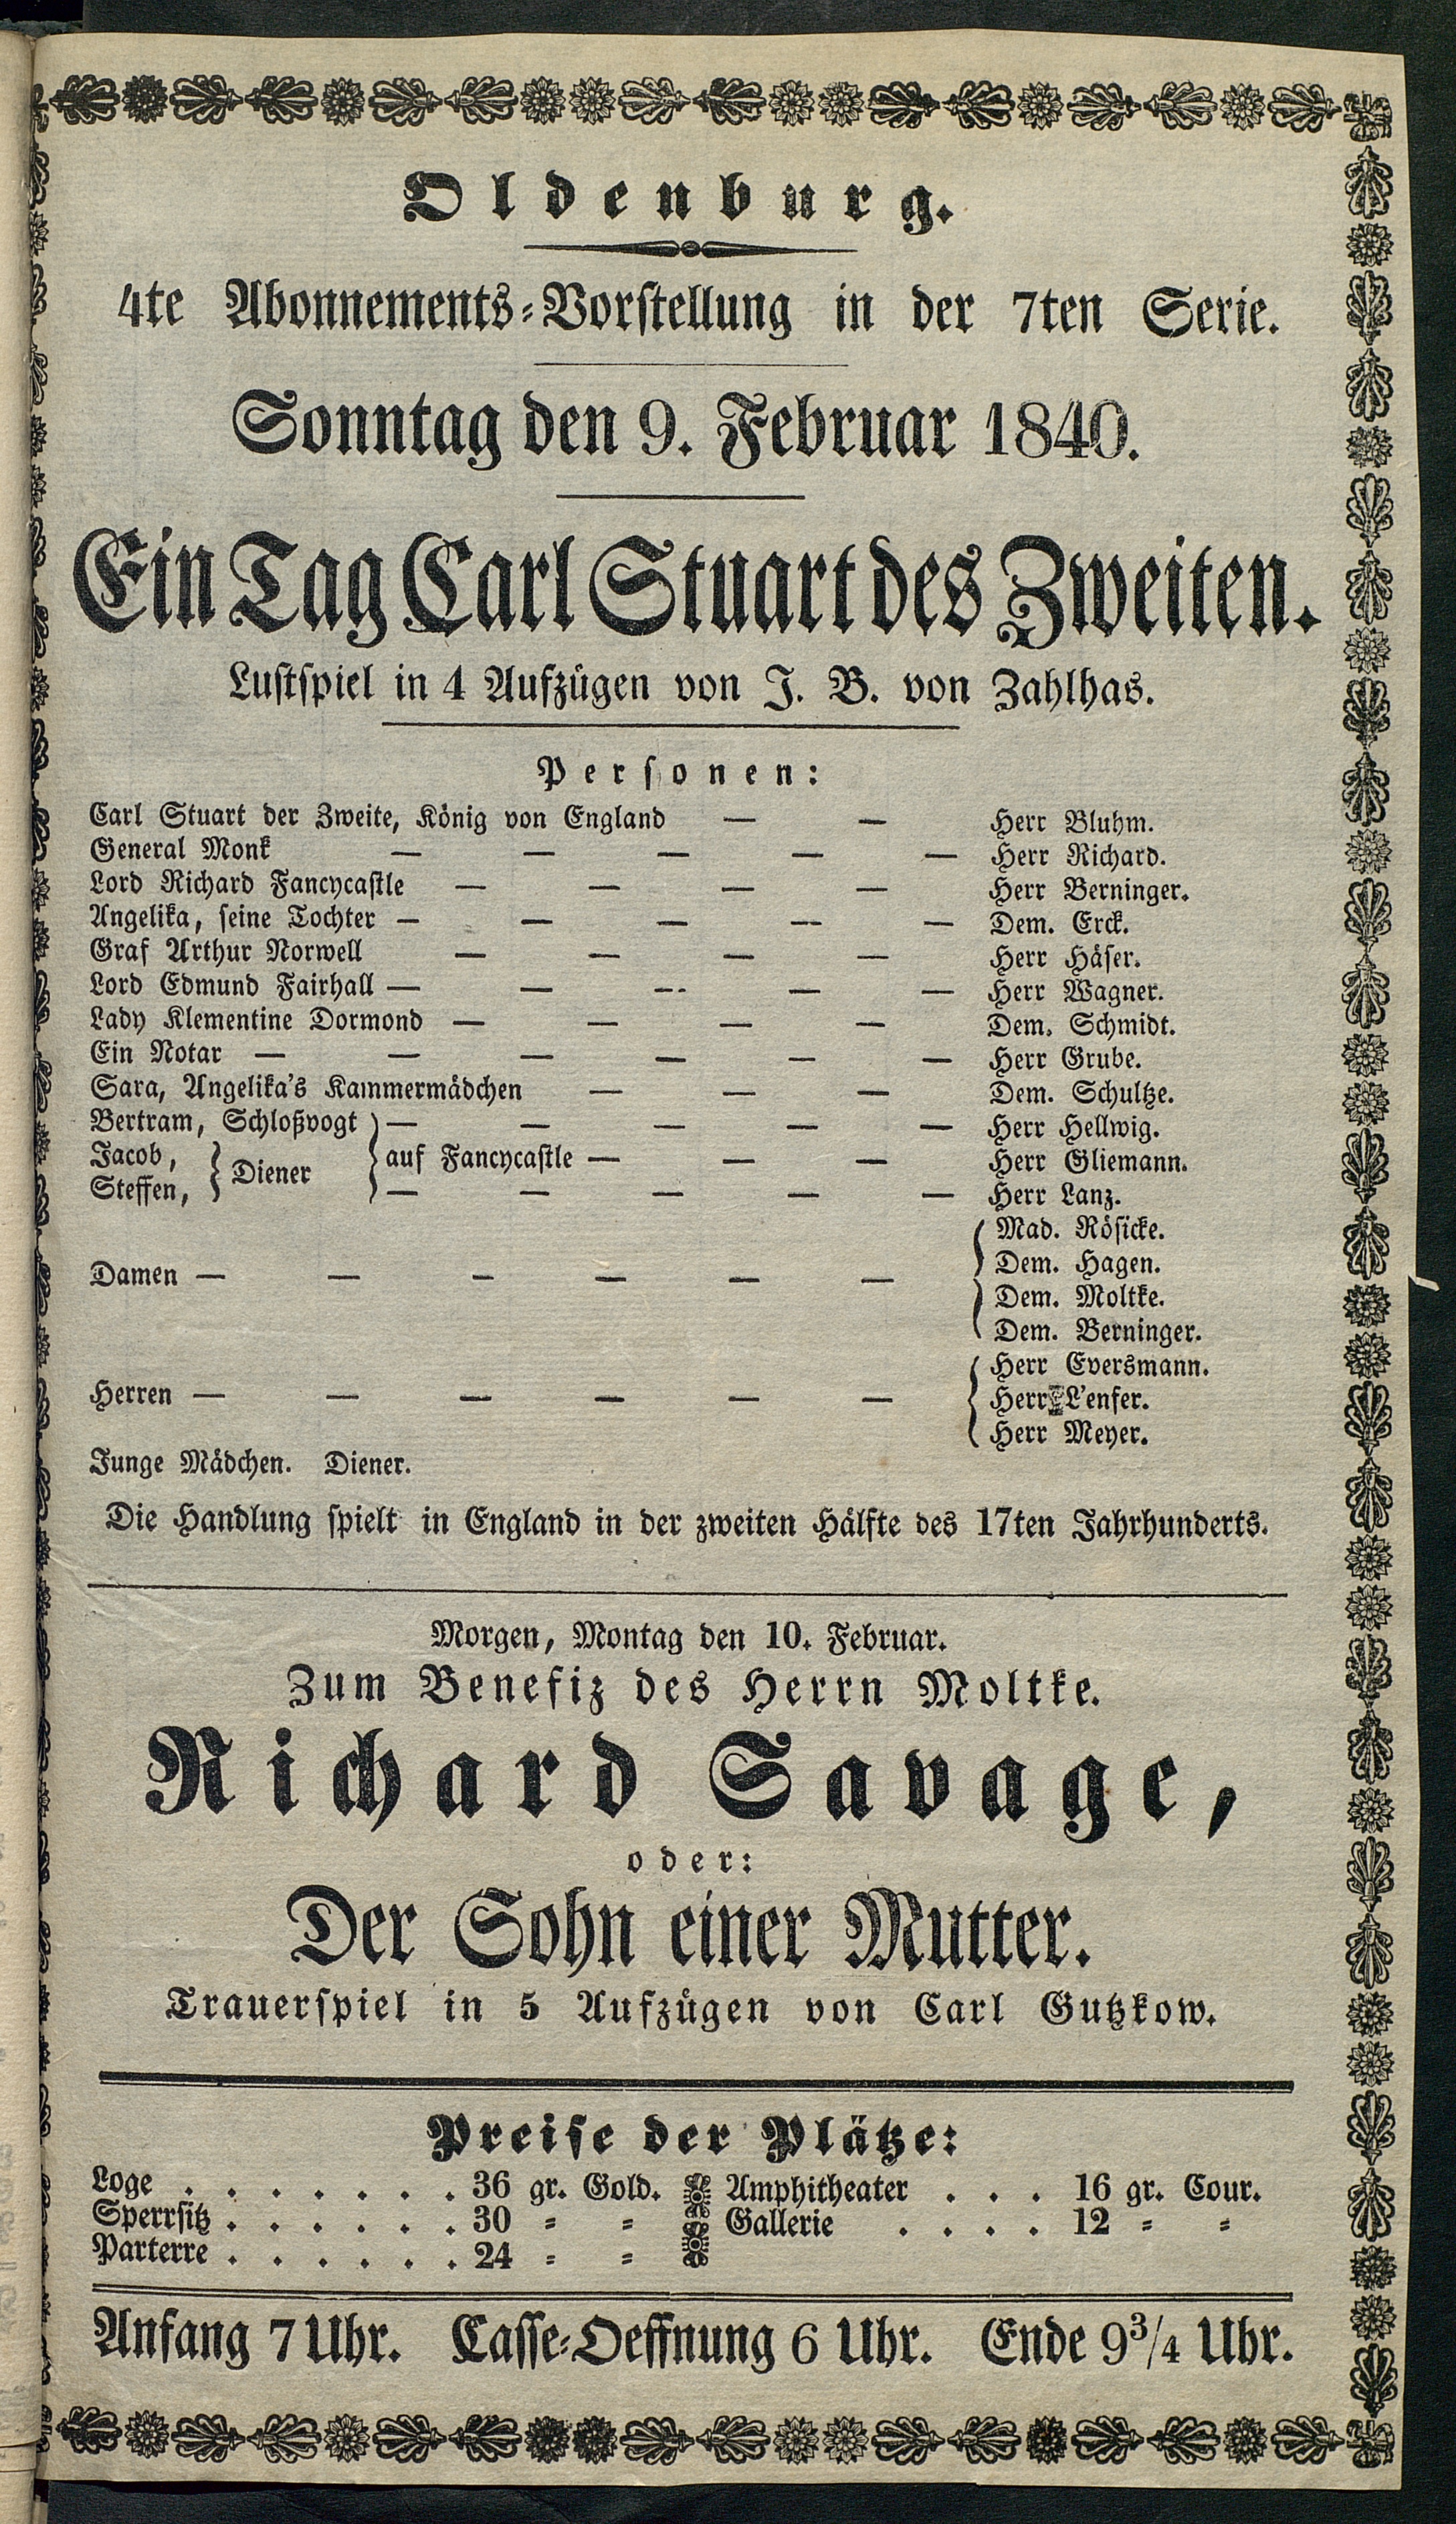 Oldenburg.
4te Abonnements-Vorstellung in der 7ten Serie.
Sonntag den 9. Februar 1840.
Ein Tag Carl Stuart des Zweiten.
Lustspiel in 4 Aufzügen von J. B. von Zahlhas.
Personen:
Carl Stuart der Zweite, König von England — — Herr Bluhm.
General Monk — — — — — Herr Richard.
Lord Richard Fancycastle — — — — Herr Berninger.
Angelika, seine Tochter — — — — — Dem. Erck.
Graf Arthur Norwell — — — — Herr Häser.
Lord Edmund Fairhall — — — — — Herr Wagner.
Lady Klementine Dormond — — — — Dem. Schmidt.
Ein Notar — — — — — — Herr Grube.
Sara, Angelika's Kammermädchen — — — Dem. Schultze.
Bertram, Schloßvogt — — — — — Herr Hellwig.
Jacob, } Diener } auf Fancycastle — — — Herr Gliemann.
Steffen, — — — — — Herr Lanz.
Mad. Rösicke.
Damen — — — — — — Dem. Hagen.
Dem. Moltke.
Dem. Berninger.
Herr Eversmann.
Herren — — — — — — Herr L'enfer.
Herr Meyer.
Junge Mädchen. Diener.
Die Handlung spielt in England in der zweiten Hälfte des 17ten Jahrhunderts.
Morgen, Montag den 10. Februar.
Zum Benefiz des Herrn Moltke.
Richard Savage,
oder:
Der Sohn einer Mutter.
Trauerspiel in 5 Aufzügen von Carl Gutzkow.
Preise der Plätze:
Loge . . . . . . . 36 gr. Gold. Amphitheater . . . 16 gr. Cour.
Sperrsitz . . . . . . 30 = = Gallerie . . . . 12 = =
Parterre . . . . . . 24 = =
Anfang 7 Uhr. Casse-Oeffnung 6 Uhr. Ende 9 3/4 Uhr.